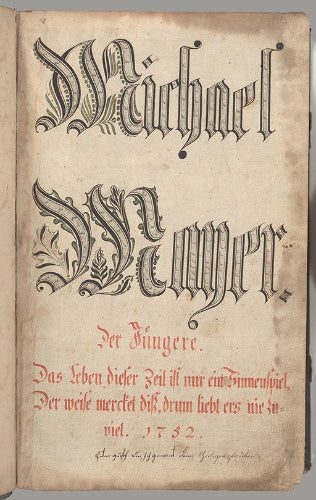 Michael
Mayer.
Der Jüngere.
Das Leben dieser Zeit ist nur ein Sinnenspiel,
Der weise mercket diß, drum liebt ers nie zu-
viel. 1752.